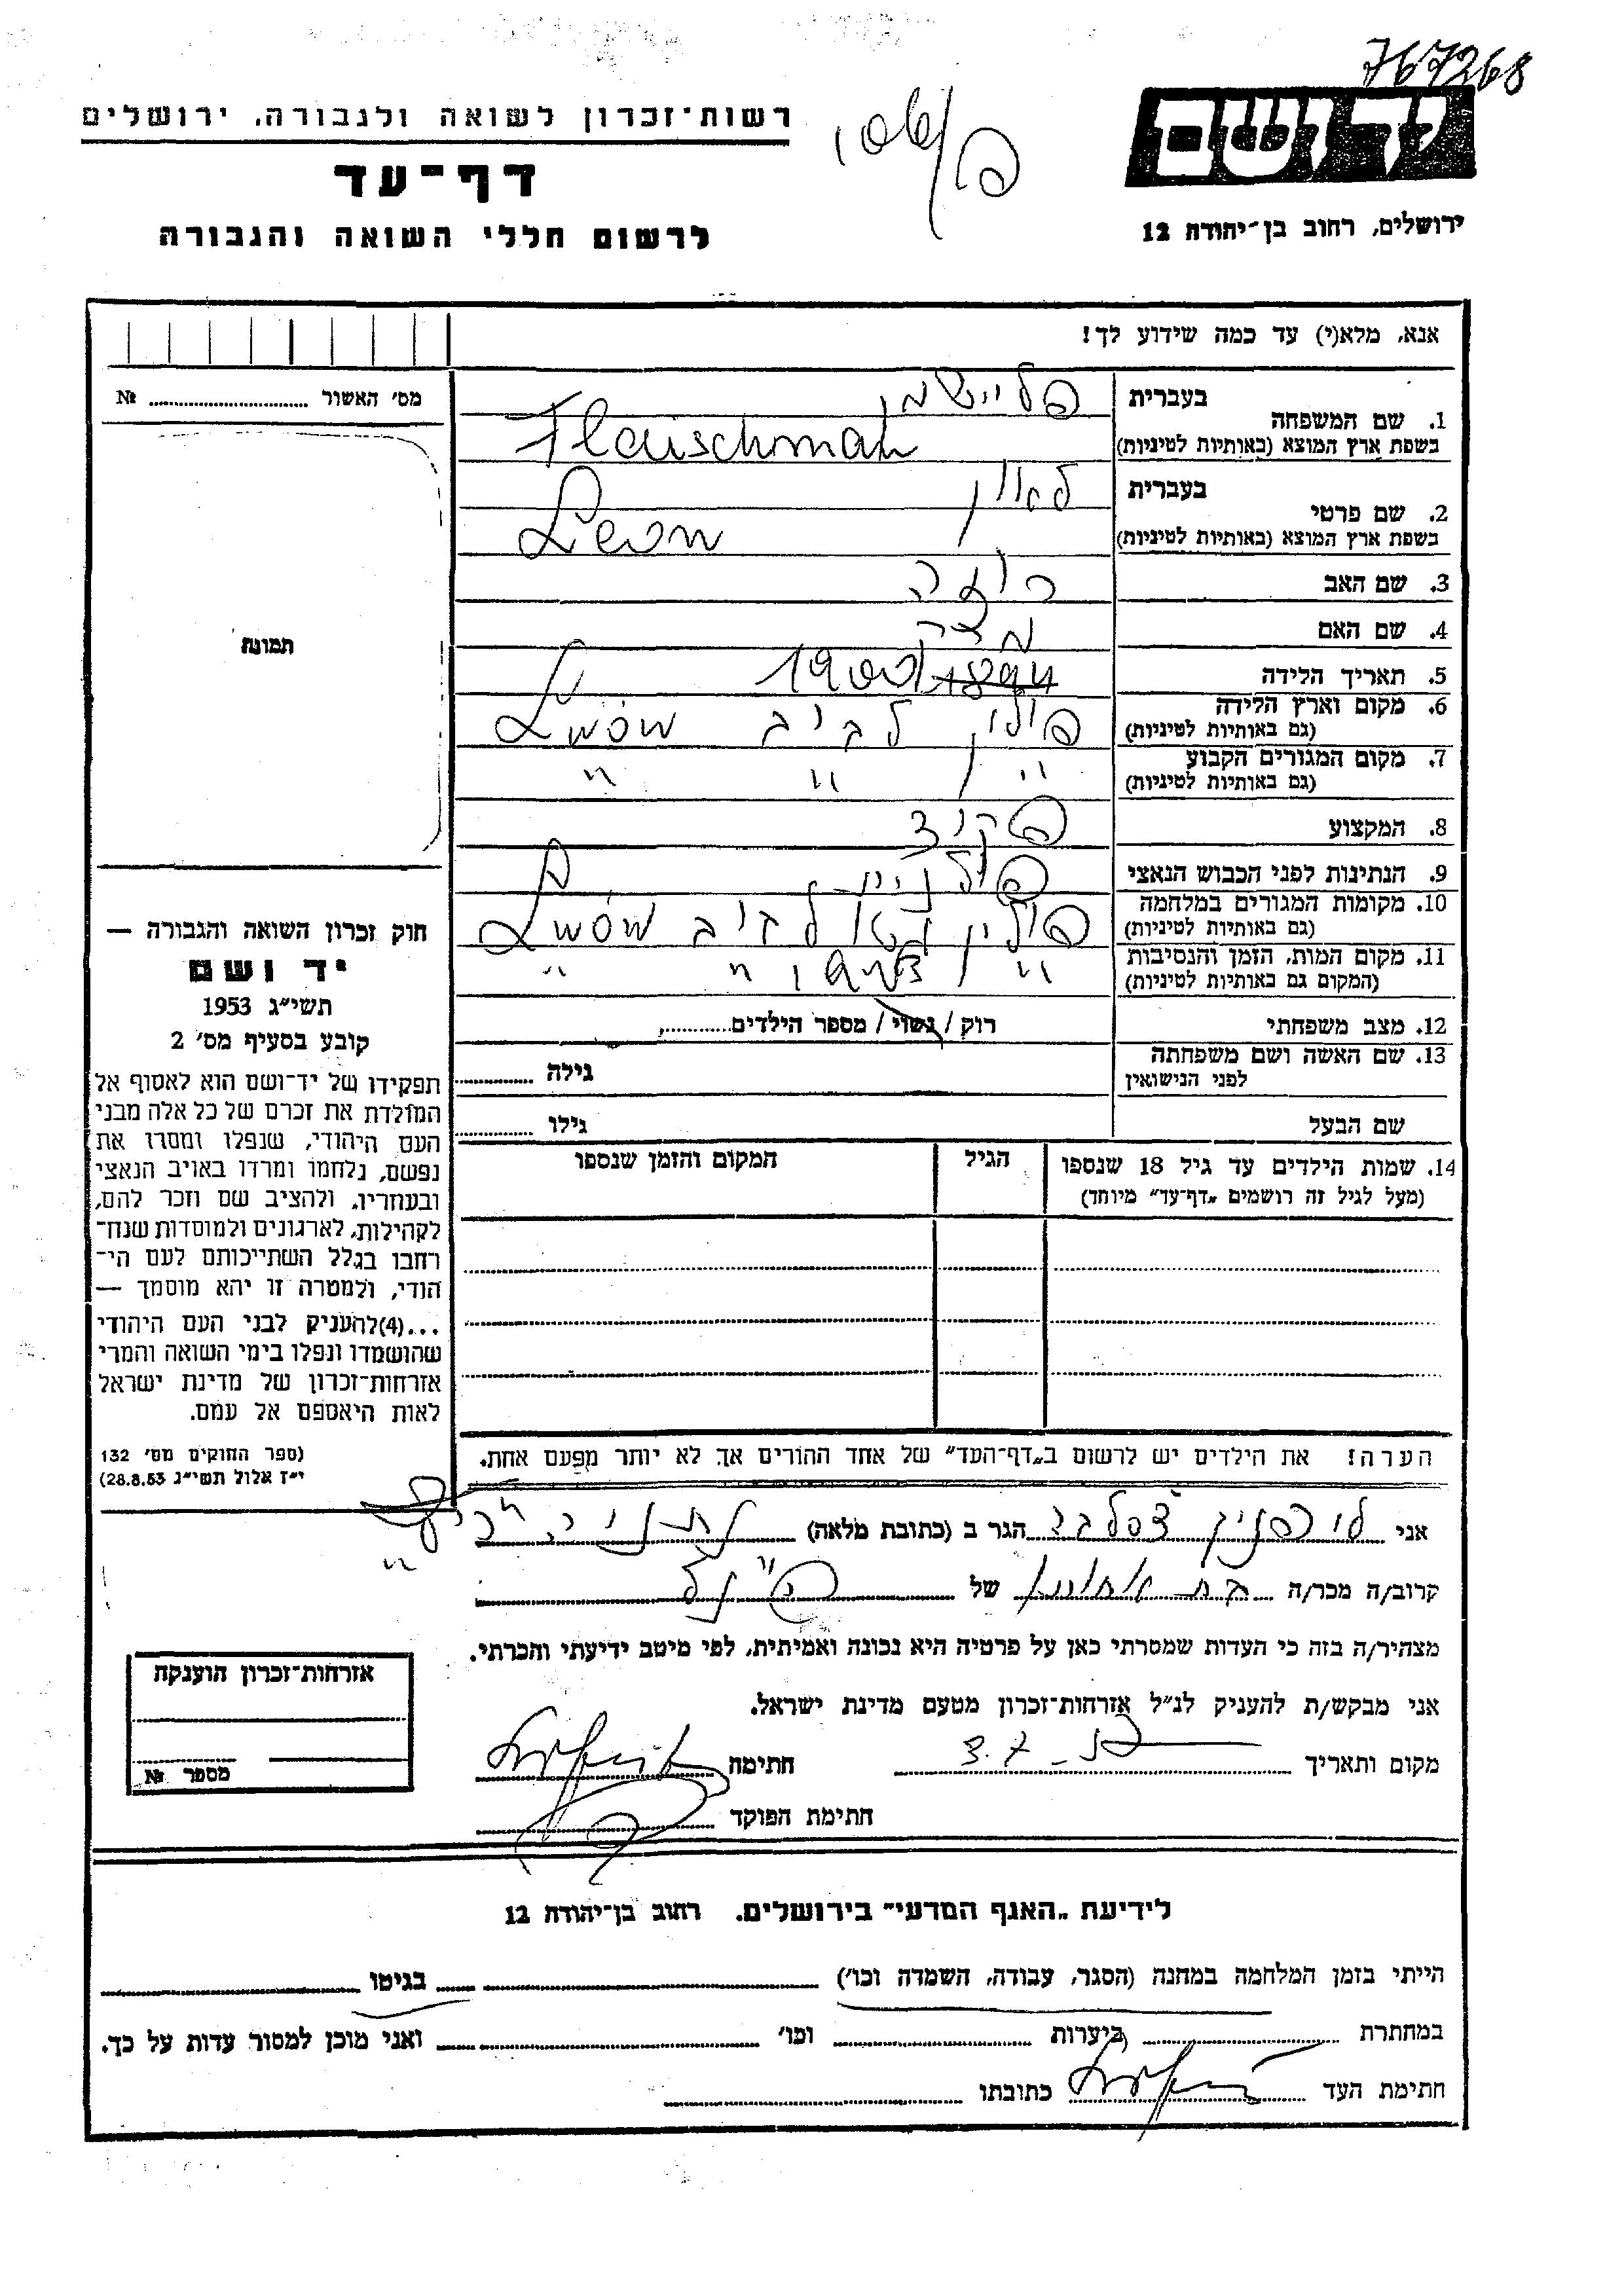 767268
רשות־זכרון לשואה ולגבורה, ירושלים
דף־עד
לרשום חללי השואה והגבורה
יד ושם
ירושלים, רחוב בן־יהודה 12
אנא, מלא(י) עד כמה שידוע לך!
מס׳ האשור № ........
1. שם המשפחה
בעברית פליישמן
בשפת ארץ המוצא (באותיות לטיניות) Flaischman
2. שם פרטי
בעברית לאון
בשפת ארץ המוצא (באותיות לטיניות) Leon
3. שם האב
4. שם האם
5. תאריך הלידה 1894 1900
6. מקום וארץ הלידה פולין לביב Lwów
(גם באותיות לטיניות)
7. מקום המגורים הקבוע " " "
(גם באותיות לטיניות)
8. המקצוע פקיד
9. הנתינות לפני הכבוש הנאצי פולנית
10. מקומות המגורים במלחמה פולין גטו לביב Lwów
(גם באותיות לטיניות)
11. מקום המות, הזמן והנסיבות " " "
(המקום גם באותיות לטיניות)
12. מצב משפחתי רוק / נשוי / מספר הילדים ........
13. שם האשה ושם משפחתה
לפני הנישואין
גילה ........
שם הבעל גילו ........
14. שמות הילדים עד גיל 18 שנספו
(מעל לגיל זה רושמים „דף־עד" מיוחד)
הגיל
המקום והזמן שנספו
תמונה
חוק זכרון השואה והגבורה —
יד ושם
תשי״ג 1953
קובע בסעיף מס׳ 2
תפקידו של יד־ושם הוא לאסוף אל
המולדת את זכרם של כל אלה מבני
העם היהודי, שנפלו ומסרו את
נפשם, נלחמו ומרדו באויב הנאצי
ובעוזריו, ולהציב שם וזכר להם,
לקהילות, לארגונים ולמוסדות שנח־
רחבו בגלל השתייכותם לעם הי־
הודי, ולמטרה זו יהא מוסמך —
...(4)להעניק לבני העם היהודי
שהושמדו ונפלו בימי השואה והמרי
אזרחות־זכרון של מדינת ישראל
לאות היאספם אל עמם.
(ספר החוקים מס׳ 132
י״ז אלול תשי״ג 28.8.53)
הערה! את הילדים יש לרשום ב„דף־העד" של אחד ההורים אך לא יותר מפעם אחת.
אני הגר ב (כתובת מלאה) נתניה
קרוב/ה מכר/ה של
מצהיר/ה בזה כי העדות שמסרתי כאן על פרטיה היא נכונה ואמיתית, לפי מיטב ידיעתי והכרתי.
אני מבקש/ת להעניק לנ״ל אזרחות־זכרון מטעם מדינת ישראל.
מקום ותאריך 3.7. חתימה
חתימת הפוקד
אזרחות־זכרון הוענקה
מספר №
לידיעת „האגף המדעי" בירושלים, רחוב בן־יהודה 12
הייתי בזמן המלחמה במחנה (הסגר, עבודה, השמדה וכו׳) בגיטו
במחתרת ביערות וכו׳ ואני מוכן למסור עדות על כך.
חתימת העד כתובתו